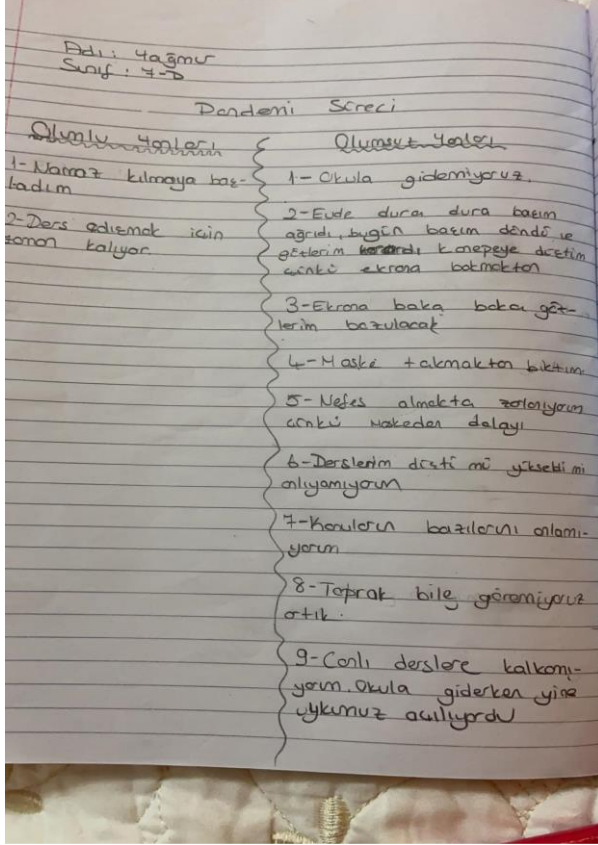 Adı: Yağmur
Sınıf: 7-D
Pandemi Süreci
Olumlu Yönleri
1-Namaz kılmaya baş-
ladım
2-Ders çalışmak için
zaman kalıyor.
Olumsuz Yönleri
1-Okula gidemiyoruz.
2-Evde dura dura başım
ağrıdı, bugün başım döndü ve
gözlerim karardı kanepeye düştüm
çünkü ekrana bakmaktan
3-Ekrana baka baka göz-
lerim bozulacak
4-Maske takmaktan bıktım
5-Nefes almakta zorlanıyorum
çünkü maskeden dolayı
6-Derslerim düştü mü yükseldi mi
anlıyamıyorum
7-Konuların bazılarını anlamı-
yorum
8-Toprak bile göremiyoruz
artık.
9-Canlı derslere kalkamı-
yorum. Okula giderken yine
uykumuz açılıyordu